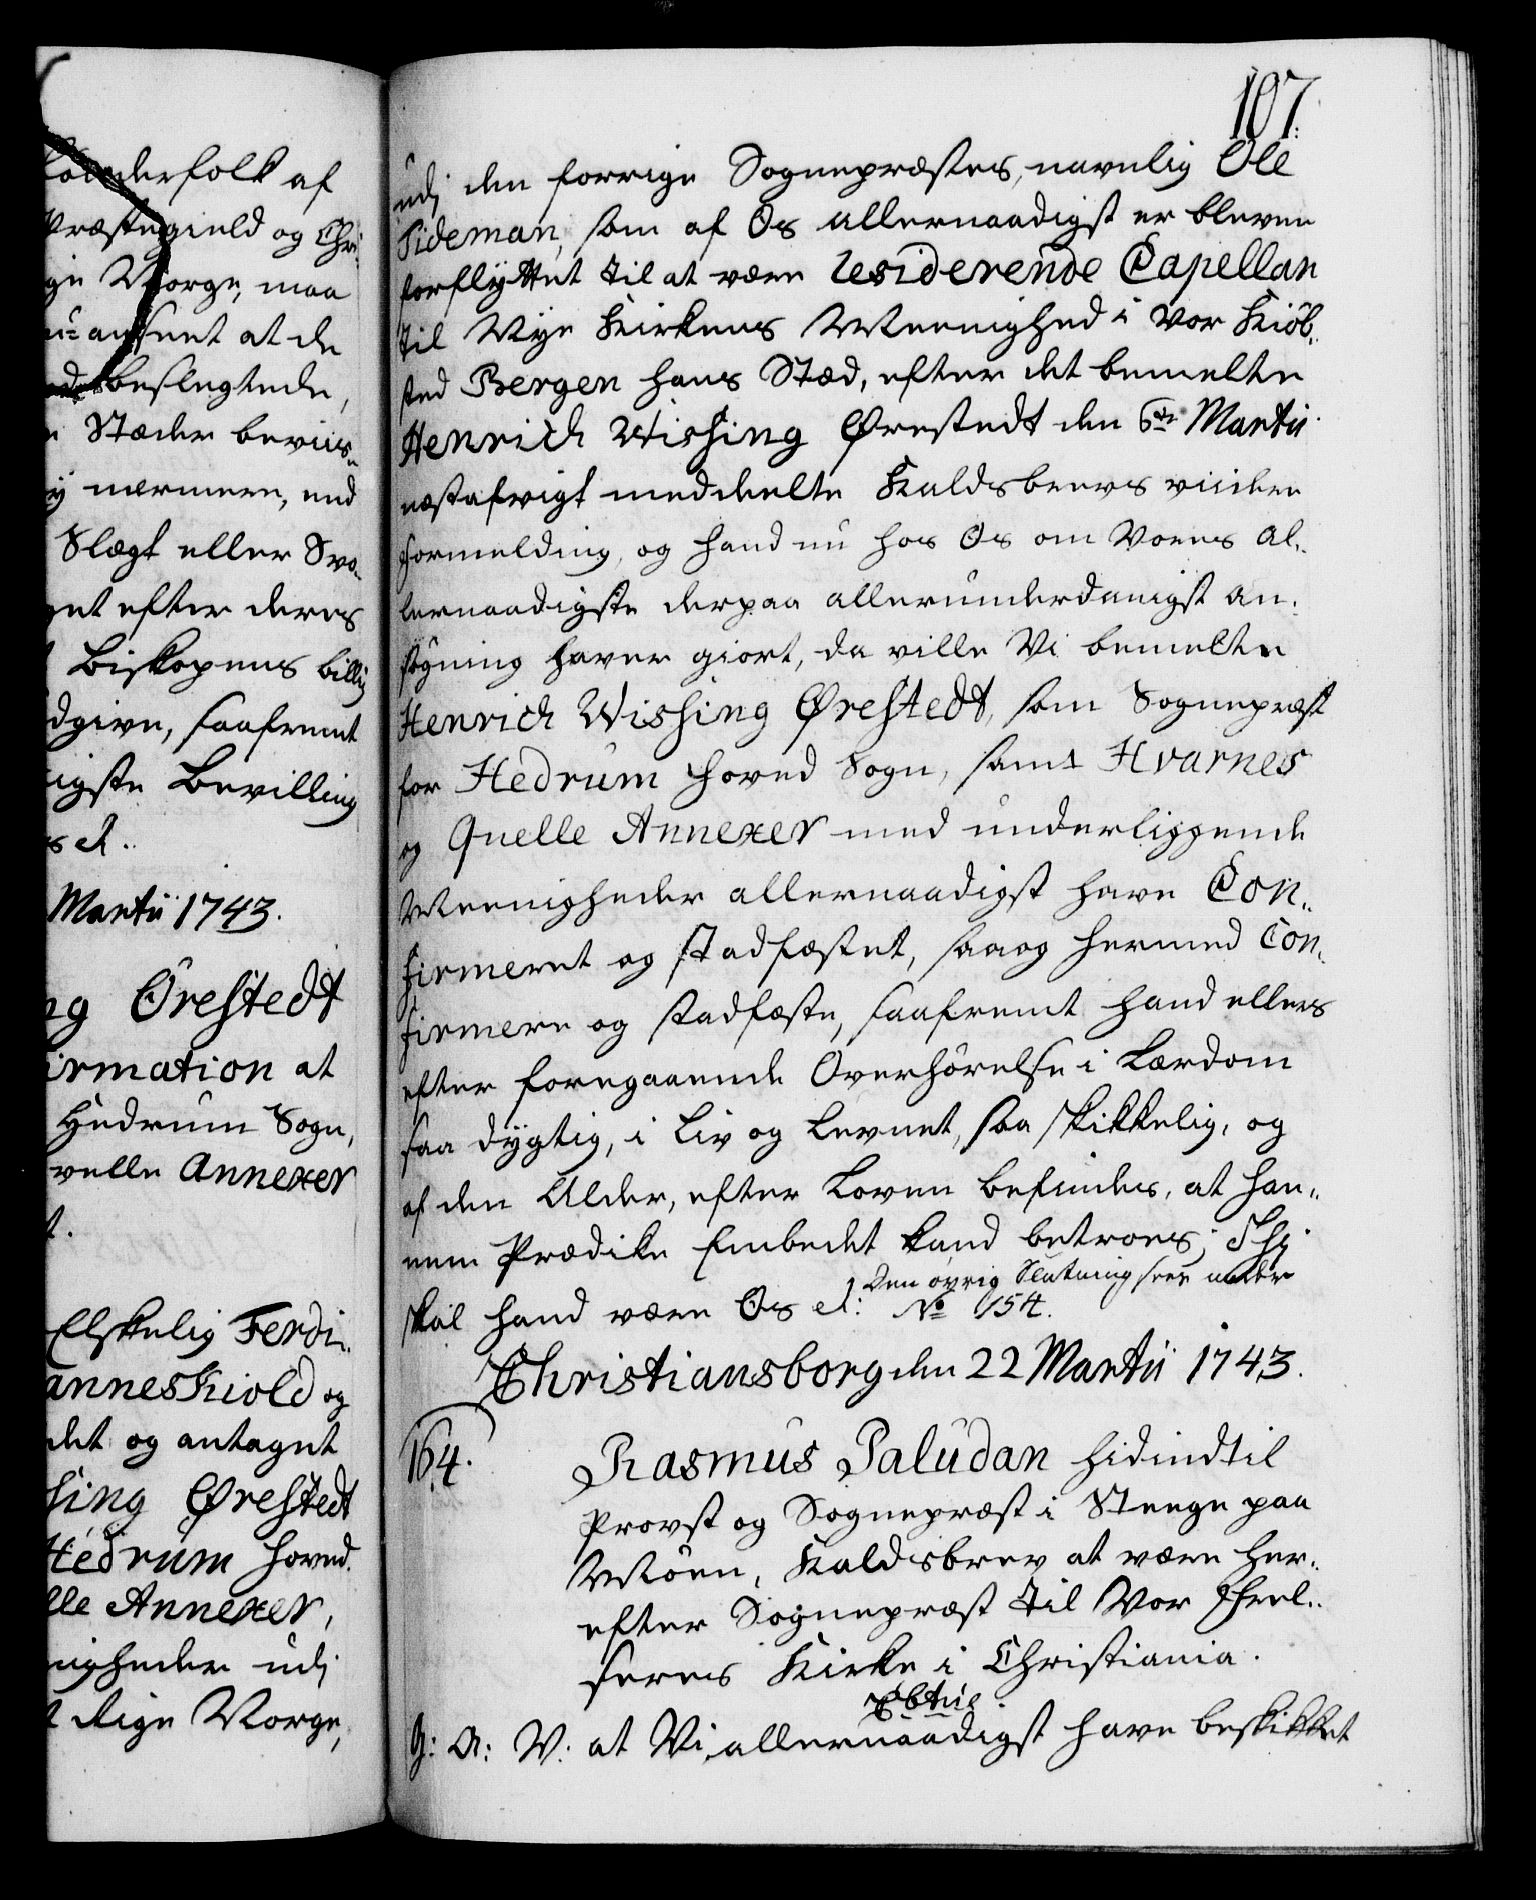 tionderfolk af
Præstegield og Chri
ge Norge, maa
u-anseet at de
beslegtede,
Stæder beviis„
y nærmere, end
Slægt eller Svo„
get efter deres
Biskopens billig
dgive, saafremt
igste Bevilling
s etc.
Martii 1743.
ng Ørestedt
irmation at
Hedrum Sogn,
velle Annexer
t.
Elskelig Ferdi„
anneskiold og
det og antaget
sing Ørestedt
Hedrum hoved
lle Annexer,
nigheder udj
t Rige Norge,
107.
udj den forrige Sognepræstes, navnlig Ole
Tideman, som af Os allernaadigst er bleven
forflyttet til at være residerende Capellan
til Nye Kirkens Meenighed i vor Kiøb„
sted Bergen hans Stæd, efter det bemelte
Henrich Wissing Ørestedt den 6te Martii
næstafvigt meddeelte Kaldsbrevs viidere
formelding, og hand nu hos Os om Vores al„
lernaadigste derpaa allerunderdanigst an„
søgning haver giort, da ville Vi bemelte
Henrich Wissing Ørestedt, som Sognepræst
for Hedrum hoved Sogn, samt Hvarnes
og Quelle Annexer med underliggende
Meenigheder allernaadigst have Con„
firmeret og stadfæstet, saa og hermed Con„
firmere og stadfæste, saafremt hand ellers
efter foregaaende Overhørelse i Lærdom
saa dygtig, i Liv og Levnet, saa skikkelig, og
af den Alder, efter Loven befindes, at han„
nem Prædike Embedet kand betroes; Thj
skal hand være Os etc: Den øvrig Slutning sees under
No 154.
Christiansborg den 22 Martii 1743.
164.
Rasmus Paludan hidindtil
Provst og Sognepræst i Steege paa
Møen, Kaldsbrev at være her„
efter Sognepræst til Vor Frel„
seres Kirke i Christiania.
G: A: V: at Vi allernaadigst have beskikket